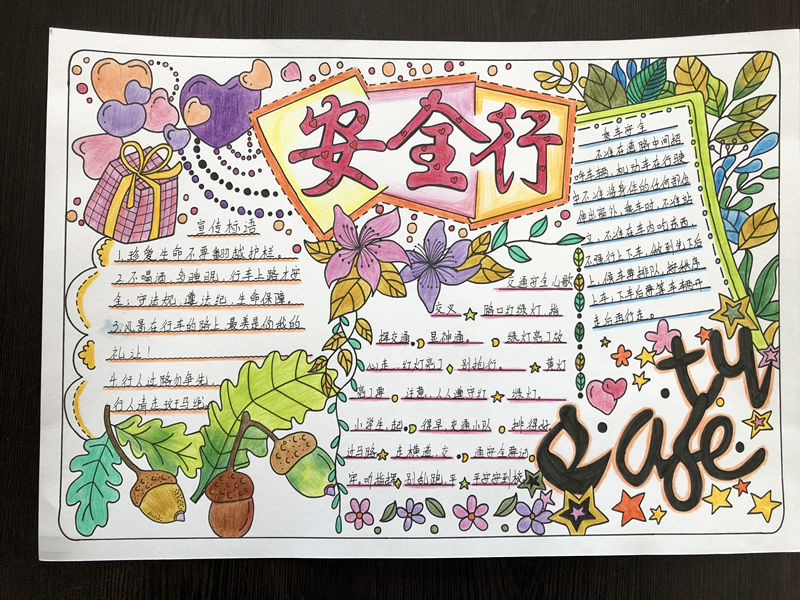 安全行
宣传标语
1.珍爱生命不要翻越护栏。
2.不喝酒,勿睡眠,行车上路才安
全;守法规,遵法纪,生命保障。
3.风景在行车的路上,最美是你我的
礼让!
4.行人过路勿争先,
行人请走斑马线
交通安全儿歌
交叉 路口红绿灯 指
挥交通 显神通 绿灯亮了放
心走 红灯亮了 别抢行 黄灯
亮了要 注意 人人遵守灯 绿灯
小学生,起 得早 交通小队 排得好
过马路 走横道 交 通安全要记
牢,听指挥 别乱跑 平 平安安到校
乘车安全
不准在道路中间招
呼车辆,机动车在行驶
中不准将身体的任何部位
伸出窗外 乘车时,不准站
不准在车内吃东西
上,候车要排队,按秩序
上车,下车后要等车辆开
走后再行走。
safe
ty